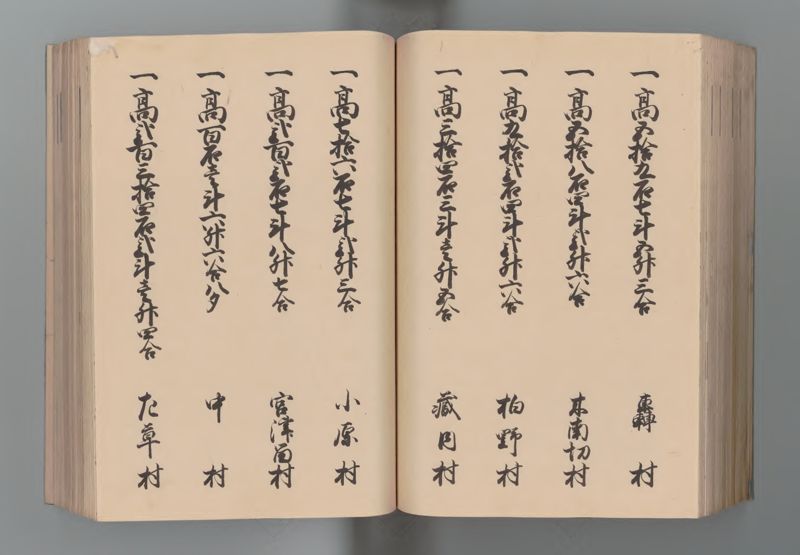 一高五拾九石七斗五升三合 轟村
一高五拾八石四斗弐升六合 木南切村
一高九拾弐石四斗弐升六合 柏野村
一高三拾四石三斗壱升五合 蔵目村
一高七拾六石七斗弐升三合 小原村
一高弐百弐石七斗八升七合 宮津留村
一高百石壱斗六升六合八夕 中村
一高弐百三拾四石弐斗壱升四合 草村